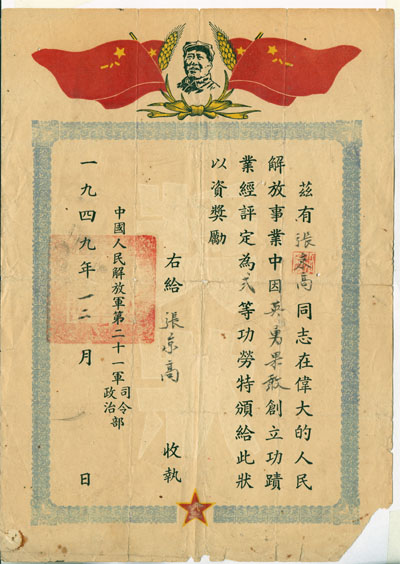 茲有張京高同志在偉大的人民
解放事業中因英勇果敢創立功蹟
業經評定為弍等功勞特頒給此狀
以資獎勵
右給 張京高 收執
中國人民解放軍第二十一軍司令政治部
一九四九年十二月一日